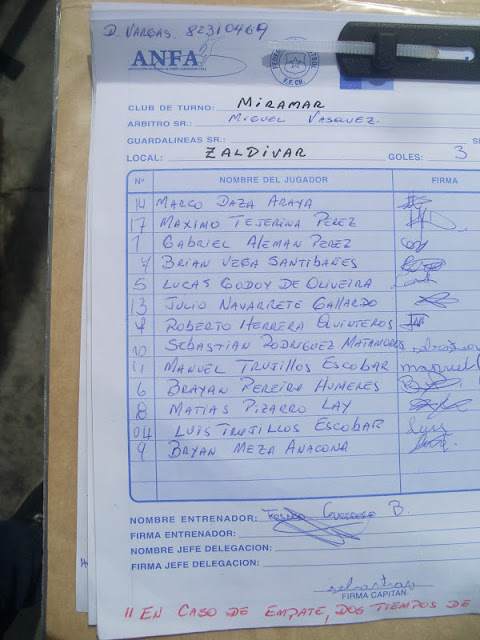 D. VARGAS. 82310469
ANFA
CLUB DE TURNO: MIRAMAR
ARBITRO SR.: MIGUEL VASQUEZ.
GUARDALINEAS SR.:
LOCAL: ZALDIVAR GOLES: 3
Nº NOMBRE DEL JUGADOR FIRMA
14 MARCO DAZA ARAYA
17 MAXIMO TEJERINA PEREZ
1 GABRIEL ALEMAN PEREZ
7 BRIAN VEGA SANTIBAÑES
5 LUCAS GODOY DE OLIVEIRA
13 JULIO NAVARRETE GALLARDO
4 ROBERTO HERRERA QUINTEROS
10 SEBASTIAN RODRIGUEZ MATAMOROS
11 MANUEL TRUJILLOS ESCOBAR manuel
6 BRAYAN PEREIRA HUMENES
8 MATIAS PIZARRO LAY
04 LUIS TRUJILLOS ESCOBAR luis
9 BRYAN MEZA ANACONA
NOMBRE ENTRENADOR: B.
FIRMA ENTRENADOR:
NOMBRE JEFE DELEGACION:
FIRMA JEFE DELEGACION:
sebastian
FIRMA CAPITAN
11 EN CASO DE EMPATE, DOS TIEMPOS DE